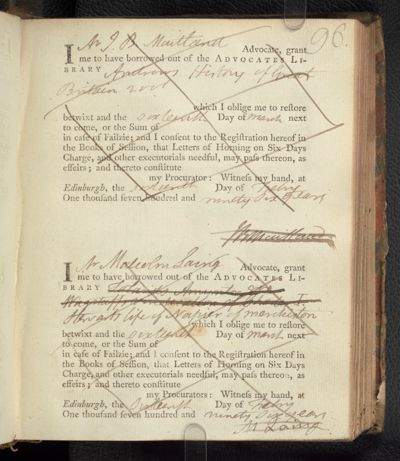 96.
I Mr J. B Maitland Advocate, grant
me to have borrowed out of the ADVOCATES LI-
BRARY Andrews History of Great
Britain 2 vol
which I oblige me to reſtore
betwixt and the sixteenth Day of March next
to come, or the Sum of
in caſe of Failzie; and I conſent to the Regiſtration hereof in
the Books of Seſſion, that Letters of Horning on Six Days
Charge, and other executorials needful, may paſs thereon, as
effeirs; and thereto conſtitute
my Procurator: Witneſs my hand, at
Edinburgh, the sixteenth Day of Febry
One thouſand ſeven hundred and ninety six years
I Mr Malcolm Laing Advocate, grant
me to have borrowed out of the ADVOCATES LI-
BRARY
Wagstaffs vindication of
Stewarts life of Napier of Merchiston
which I oblige me to reſtore
betwixt and the sixteenth Day of March next
to come, or the Sum of
in caſe of Failzie; and I conſent to the Regiſtration hereof in
the Books of Seſſion, that Letters of Horning on Six Days
Charge, and other executorials needful, may paſs thereon, as
effeirs; and thereto conſtitute
my Procurator: Witneſs my hand, at
Edinburgh, the sixteenth Day of Febry
One thouſand ſeven hundred and ninety six years
M Laing